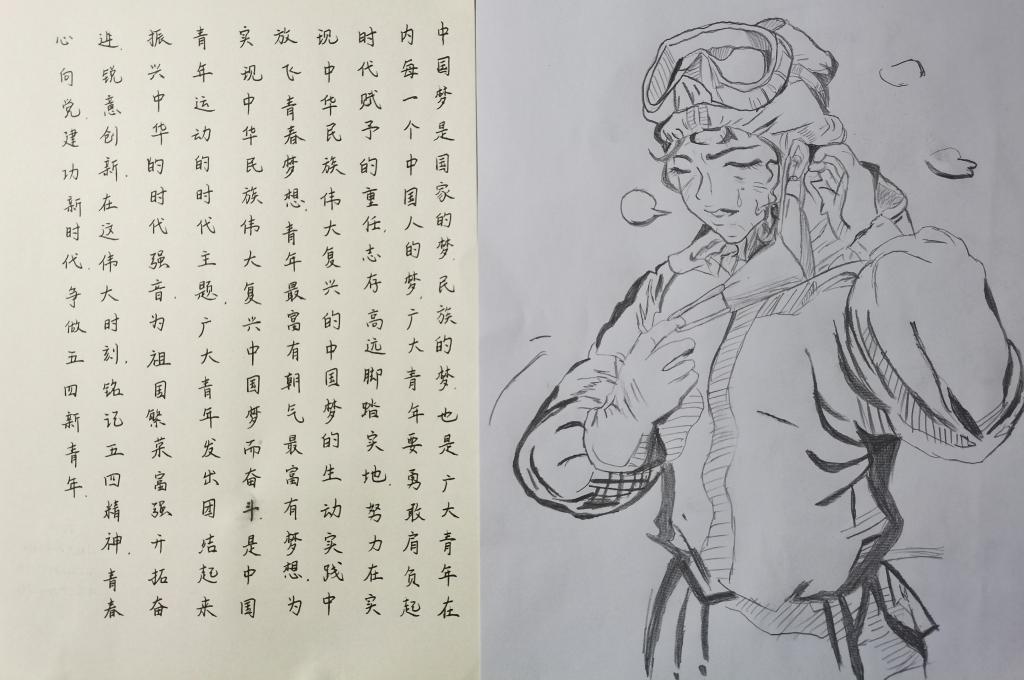 中国梦是国家的梦.民族的梦.也是广大青年在
内每一个中国人的梦,广大青年要勇敢肩负起
时代赋予的重任,志存高远脚踏实地,努力在实
现中华民族伟大复兴的中国梦的生动实践中
放飞青春梦想.青年最富有朝气最富有梦想.为
实现中华民族伟大复兴中国梦而奋斗.是中国
青年运动的时代主题.广大青年发出团结起来
振兴中华的时代强音.为祖国繁荣富强开拓奋
进.锐意创新.在这伟大时刻.铭记五四精神.青春
心向党.建功新时代.争做五四新青年.